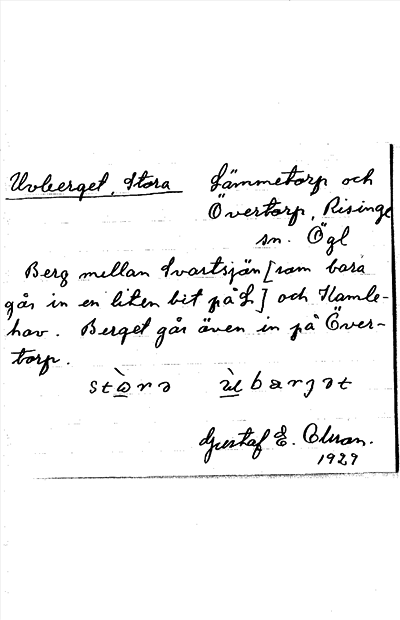 Uvberget, Stora
Lämmetorp och
Övertorp, Risinge
sn. Ögl
Berg mellan Svartsjön [som bara
går in en liten bit på L] och Hamle-
hav. Berget går även in på Över-
torp.
stɷ̀rə ùbærjət
Gustaf E.
1929